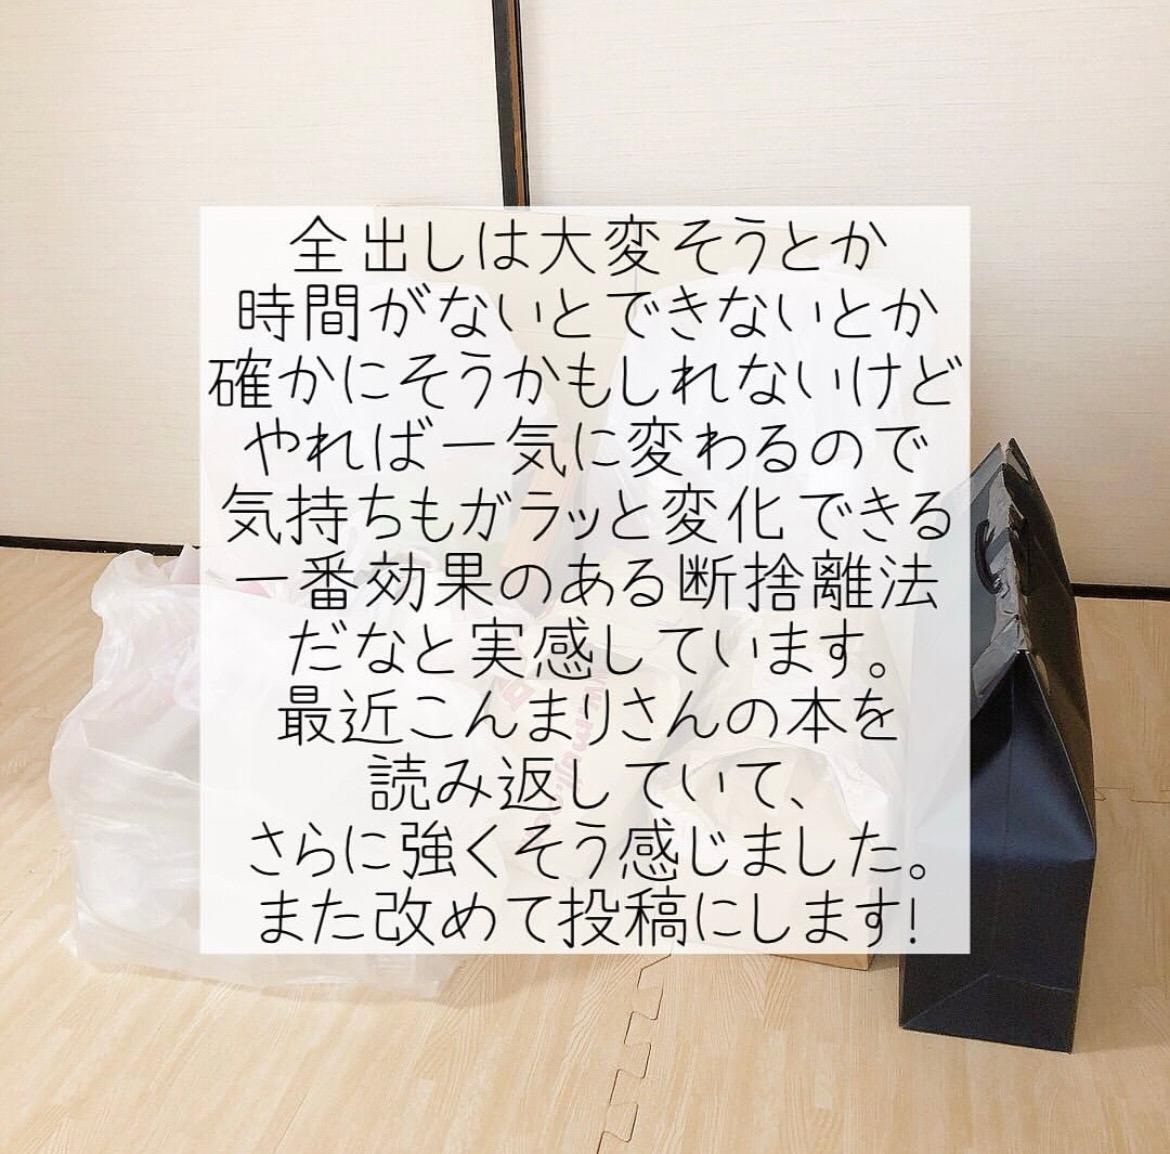 全出しは大変そうとか
時間がないとできないとか
確かにそうかもしれないけど
やれば一気に変わるので
気持ちもガラッと変化できる
一番効果のある断捨離法
だなと実感しています。
最近こんまりさんの本を
読み返していて、
さらに強くそう感じました。
また改めて投稿にします!